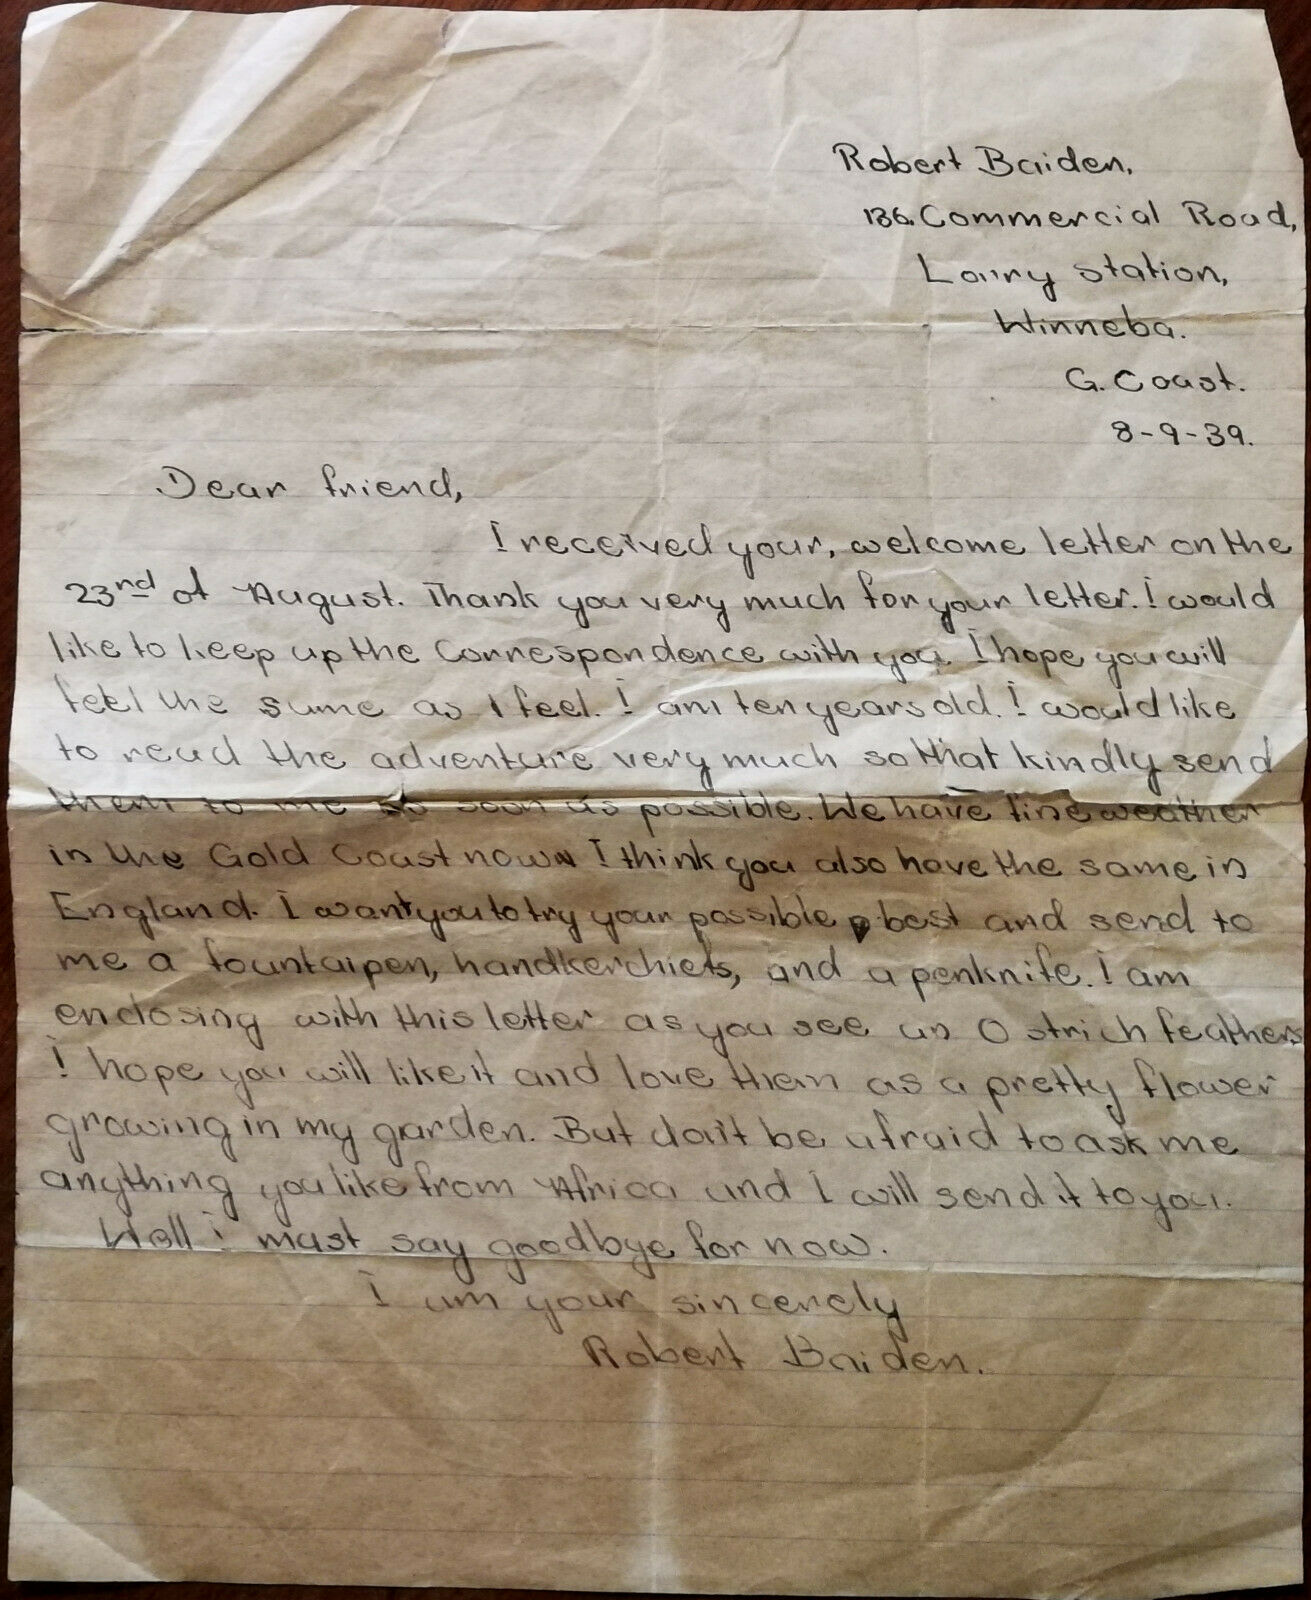 Robert Baiden,
136. Commercial Road,
Lorry station,
Winneba.
G. Coast.
8-9-39.
Dear friend,
I received your, welcome letter on the
23nd of August. Thank you very much for your letter. I would
like to keep up the Correspondence with you. I hope you will
feel the same as I feel. I am ten years old. I would like
to read the adventure very much so that kindly send
them to me so soon as possible. We have fine weather
in the Gold Coast now I think you also have the same in
England. I want you to try your possible best and send to
me a fountainpen, handkerchiefs, and a penknife. I am
enclosing with this letter as you see an Ostrich feathers
I hope you will like it and love them as a pretty flower
growing in my garden. But don't be afraid to ask me
anything you like from Africa and I will send it to you.
Well i must say goodbye for now.
I am your sincerely
Robert Baiden.